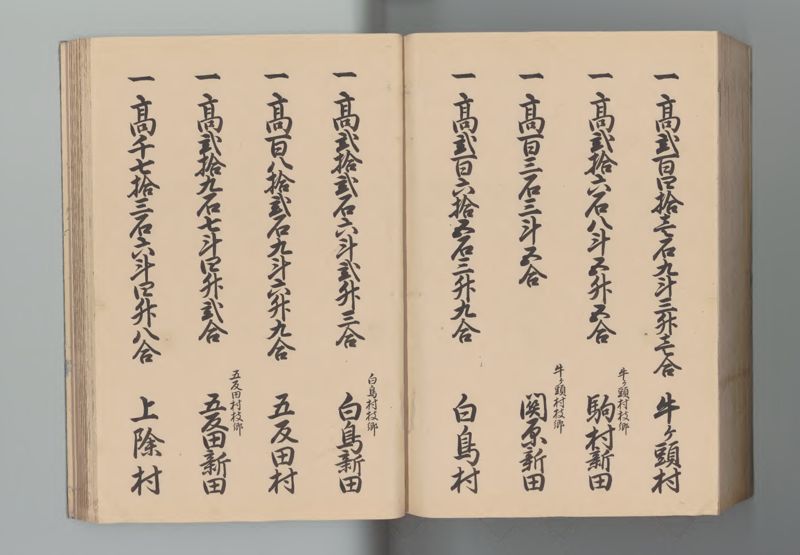 一 高弐百四拾壱石九斗三升壱合 牛ヶ頭村
牛ヶ頭村枝郷
一 高弐拾六石八斗五升五合 駒村新田
牛ヶ頭村枝郷
一 高百三石三斗五合 関原新田
一 高弐百六拾五石三升九合 白鳥村
白鳥村枝郷
一 高弐拾弐石六斗弐升三合 白鳥新田
一 高百八拾弐石九斗六升九合 五反田村
五反田村枝郷
一 高弐拾九石七斗四升弐合 五反田新田
一 高千七拾三石六斗四升八合 上除村